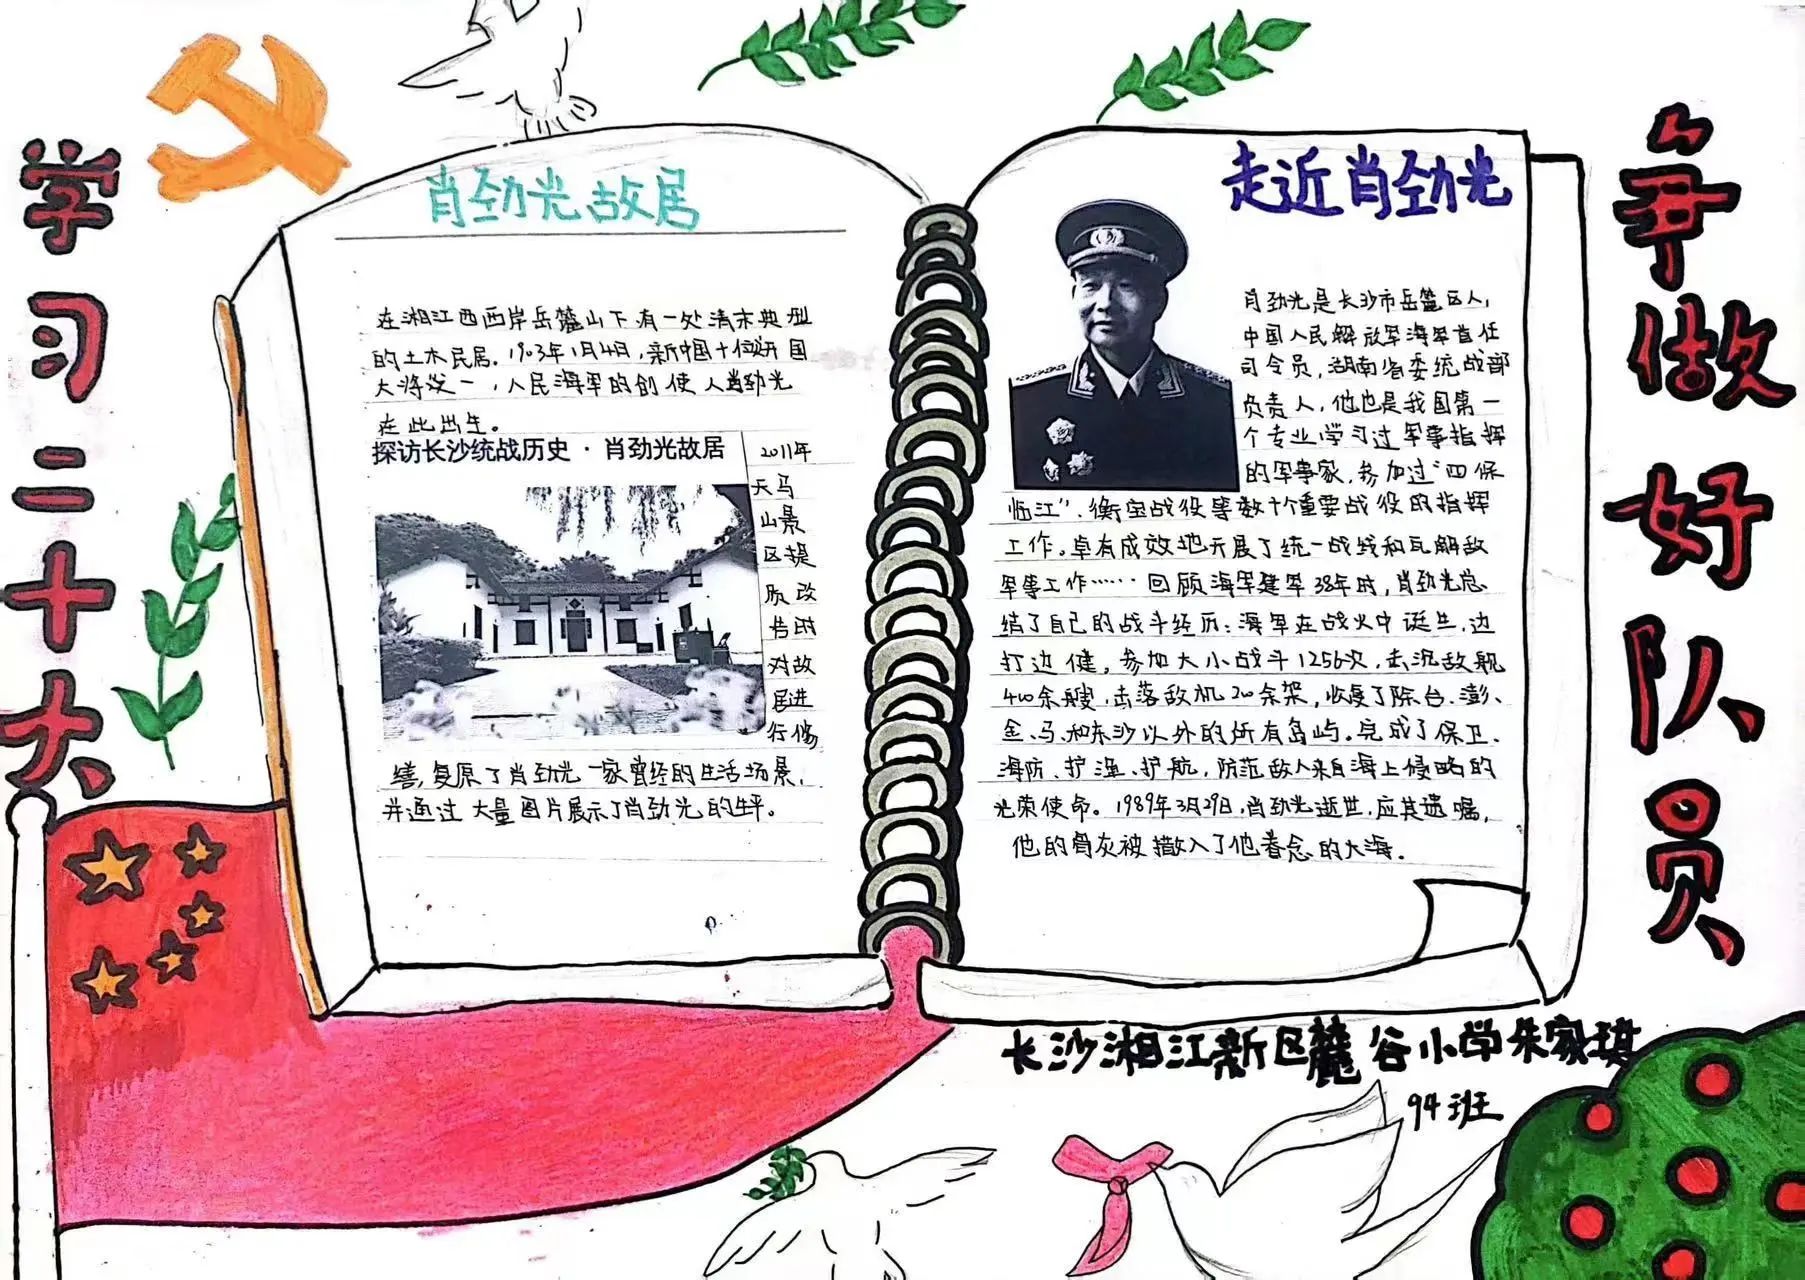 学习二十大
争做好队员
肖劲光故居
在湘江西西岸岳麓山下有一处清末典型
的土木民居。1903年1月4日,新中国十位开国
大将之一,人民海军的创使人肖劲光
在此出生。
探访长沙统战历史·肖劲光故居
2011年
天马
山景
区提
质改
造时
对故
居进
行修
缮,复原了肖劲光一家曾经的生活场景,
并通过大量图片展示了肖劲光的生平。
走近肖劲光
肖劲光是长沙市岳麓区人,
中国人民解放军海军首任
司令员,湖南省委统战部
负责人,他也是我国第一
个专业学习过军事指挥
的军事家,参加过“四保
临江”、衡宝战役等数十个重要战役的指挥
工作。卓有成效地开展了统一战线和瓦解敌
军事工作……回顾海军建军38年时,肖劲光总
结了自己的战斗经历:海军在战火中诞生,边
打边健,参加大小战斗1256次,击沉敌舰
400余艘,击落敌机200余架,收复了除台、澎、
金、马和东沙以外的所有岛屿。完成了保卫、
海防、护渔、护航,防范敌人来自海上侵略的
光荣使命。1989年3月29日,肖劲光逝世,应其遗嘱,
他的骨灰被撒入了他眷念的大海。
长沙湘江新区麓谷小学朱家琪
94班